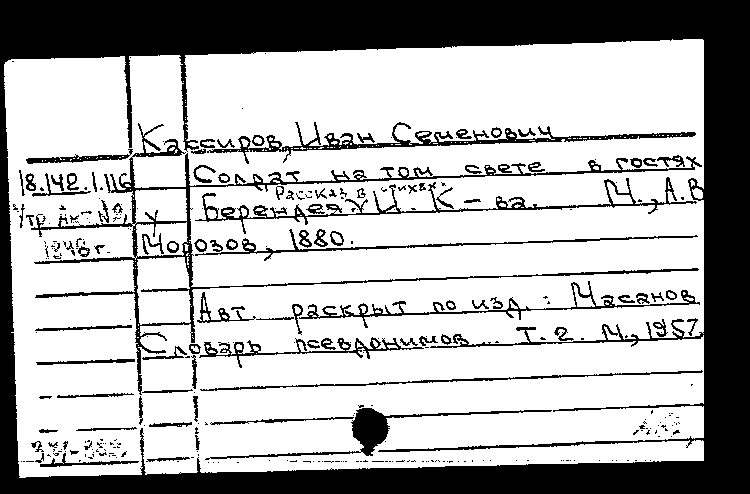 Кассиров, Иван Семенович
18.142.1.116 Солдат на том свете в гостях
Рассказ в стихах.
Утр. Акт. №2, у Берендея. И. К-ва. М., А.В
1946 г. Морозов, 1880.
Авт. раскрыт по изд.: Масанов
Словарь псевдонимов... Т. 2. М., 1957